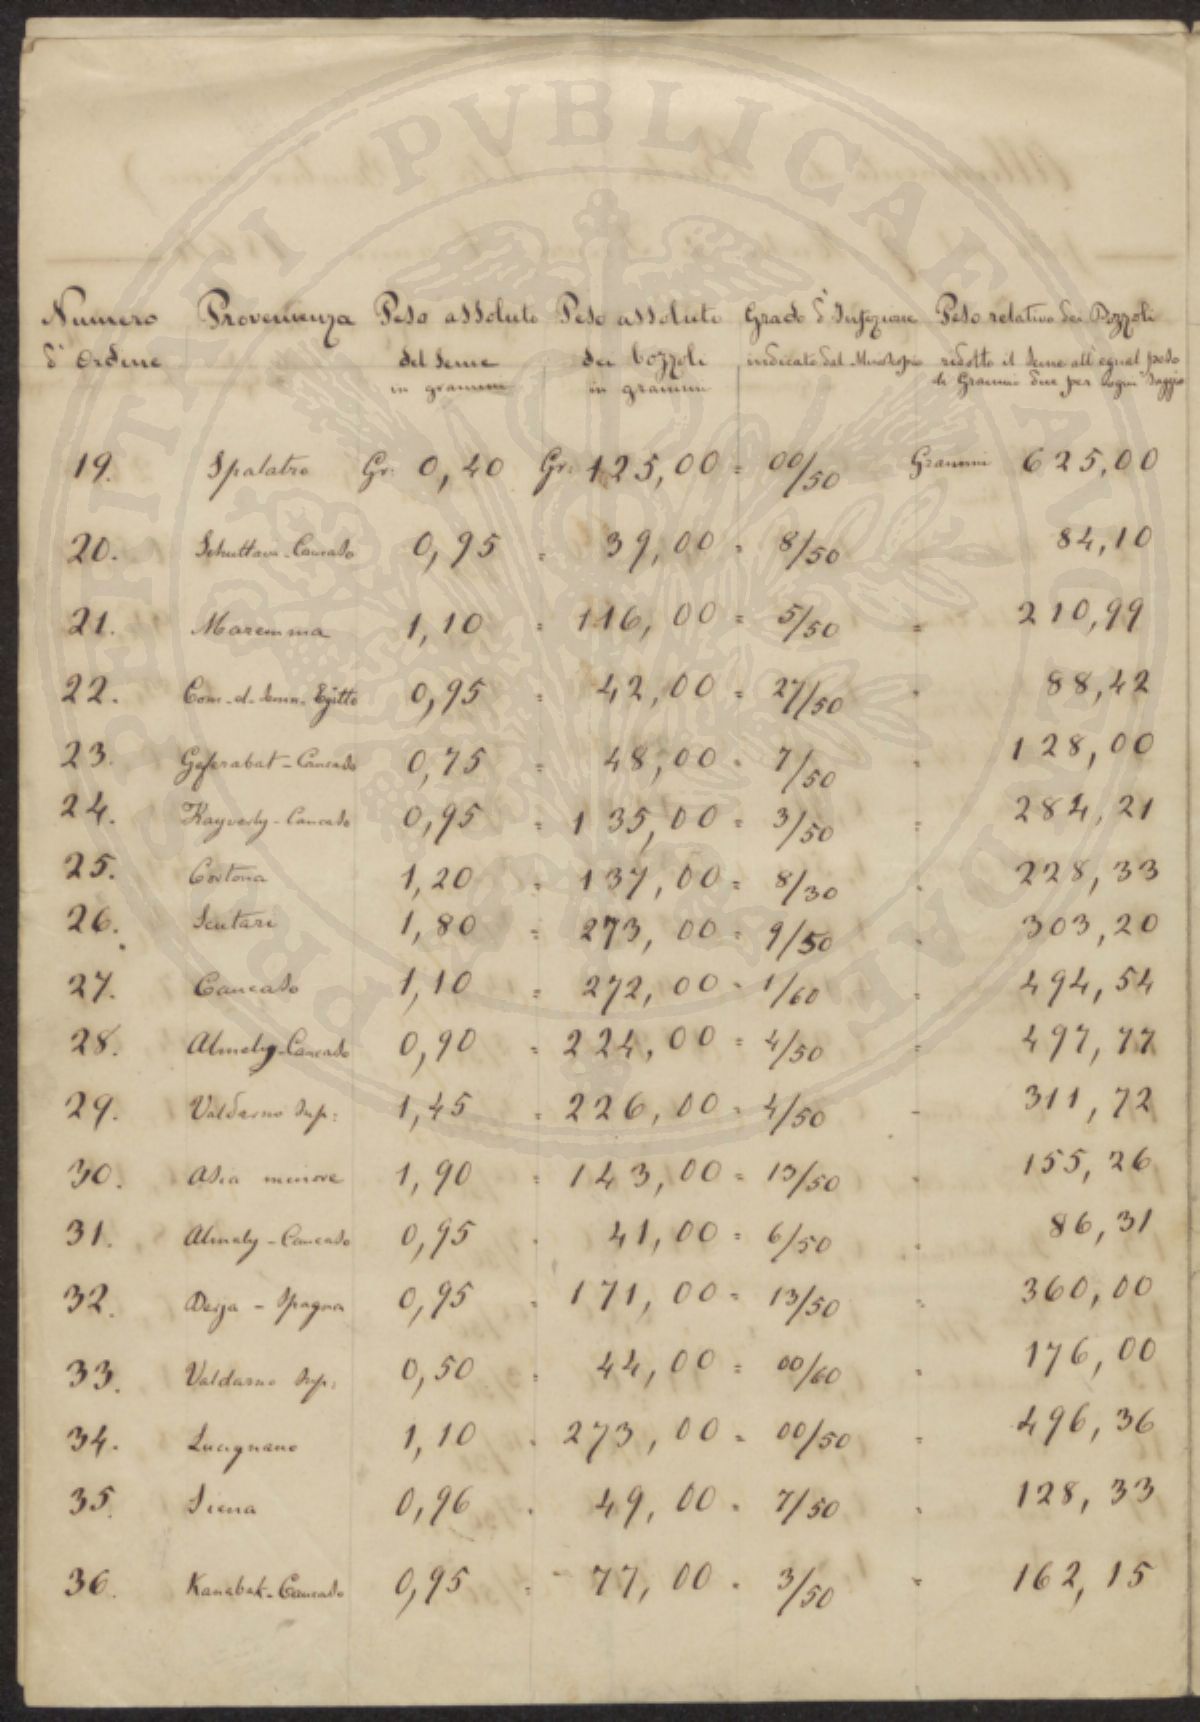 Numero d'Ordine Provenienza Peso assoluto del seme in grammi Peso assoluto dei bozzoli in grammi Grado d'Infezione indicato dal Microscopio Peso relativo dei Bozzoli ridotto il seme all'egual peso di Grammi due per ogni Saggio
19. Spalatro Gr: 0,40 Gr: 125,00 = 00/50 Grammi 625,00
20. Caucaso 0,95 = 39,00 = 8/50 84,10
21. Maremma 1,10 = 116,00 = 5/50 = 210,99
22. Com. d. Egitto 0,95 = 42,00 = 27/50 = 88,42
23. Geferabat - Caucaso 0,75 = 48,00 = 7/50 = 128,00
24. Caucaso 0,95 = 135,00 = 3/50 = 284,21
25. Cortona 1,20 = 137,00 = 8/30 = 228,33
26. Scutari 1,80 = 273,00 = 9/50 = 303,20
27. Caucaso 1,10 = 272,00 = 1/60 = 494,54
28. Almaly - Caucaso 0,90 = 224,00 = 4/50 = 497,77
29. Valdarno Sup: 1,45 = 226,00 = 4/50 = 311,72
30. Asia minore 1,90 = 143,00 = 13/50 = 155,26
31. Almaly - Caucaso 0,95 = 41,00 = 6/50 = 86,31
32. Spagna 0,95 = 171,00 = 13/50 = 360,00
33. Valdarno Sup: 0,50 = 44,00 = 00/60 = 176,00
34. Lucignano 1,10 = 273,00 = 00/50 = 496,36
35. Siena 0,96 = 49,00 = 7/50 = 128,33
36. Karabak - Caucaso 0,95 = 77,00 = 3/50 = 162,15